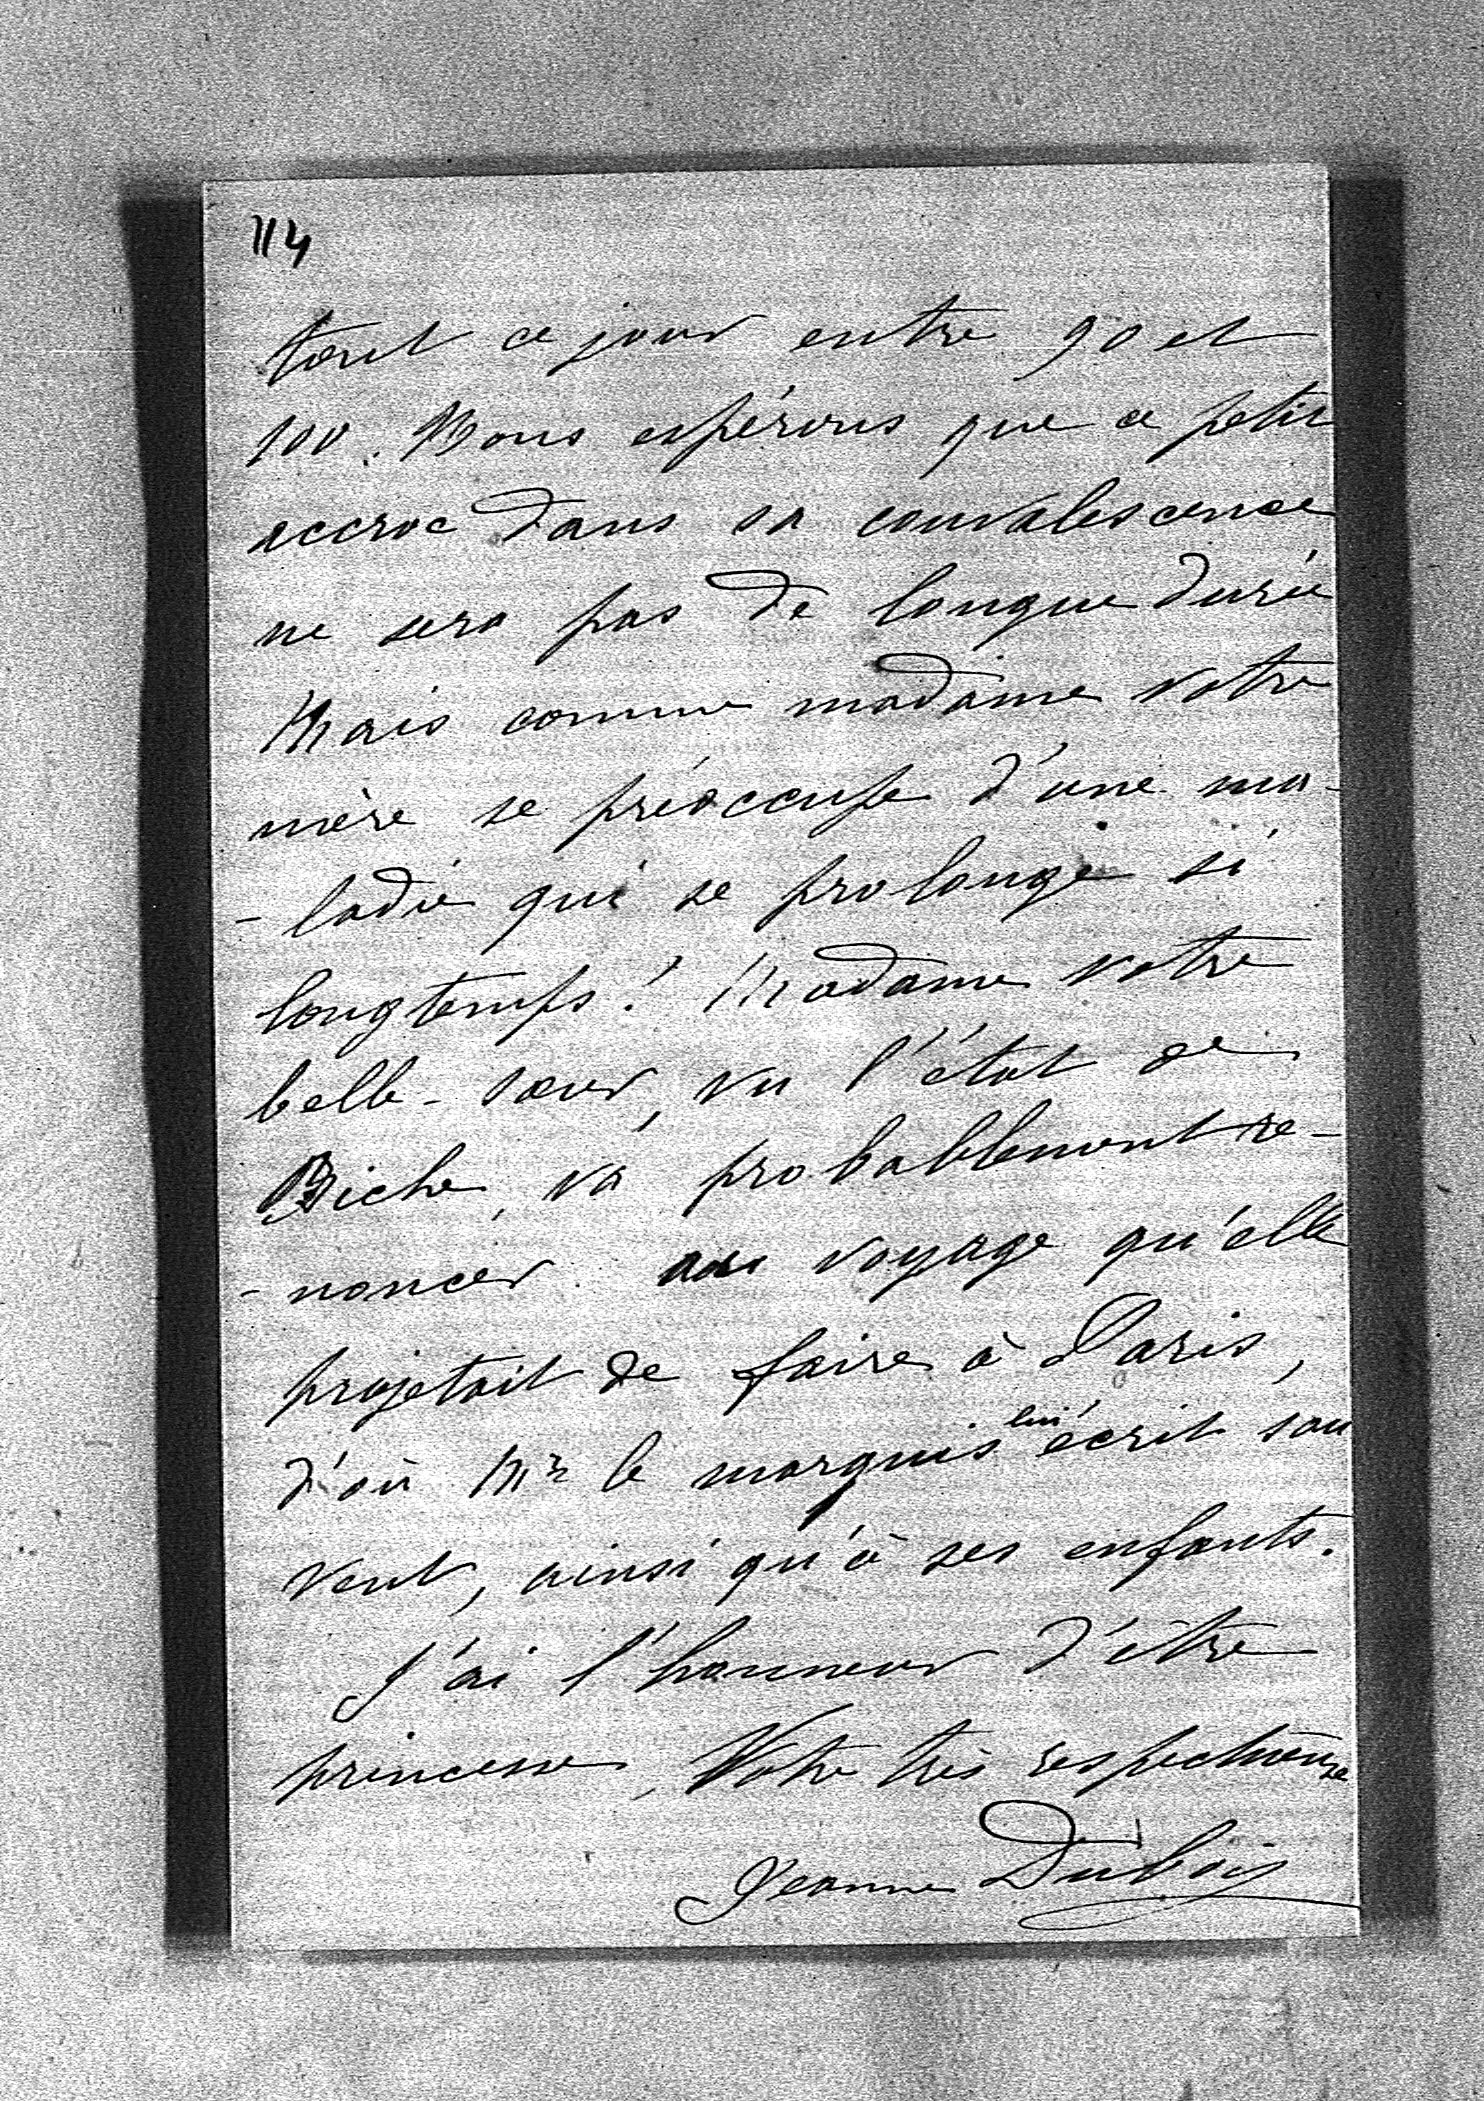 114
tout ce jour entre 90 et
100. Nous espérons que ce petit
accroc dans sa convalescence
ne sera pas de longue durée
Mais comme madame votre
mère se préoccupe d'une ma-
- ladie qui se prolonge si
longtemps! Madame votre
belle-sœur, vu l'état de
Biche, va probablement re-
- noncer au voyage qu'elle
projetait de faire à Paris,
d'où Mr le marquis lui écrit sou
vent, ainsi qu'à ses enfants.
J'ai l'honneur d'être
princesse, Votre très respectueuse
Jeanne Dubois